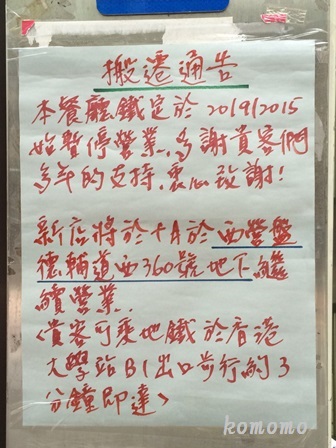 搬遷通告
本餐廳鐵定於 20/9/2015
始暫停營業，多謝貴客們
多年的支持，衷心致謝！
新店將於十月於西營盤
德輔道西360號地下繼
續營業.
<貴客可乘地鐵於香港
大學站B1出口步行約3
分鐘即達>
komomo